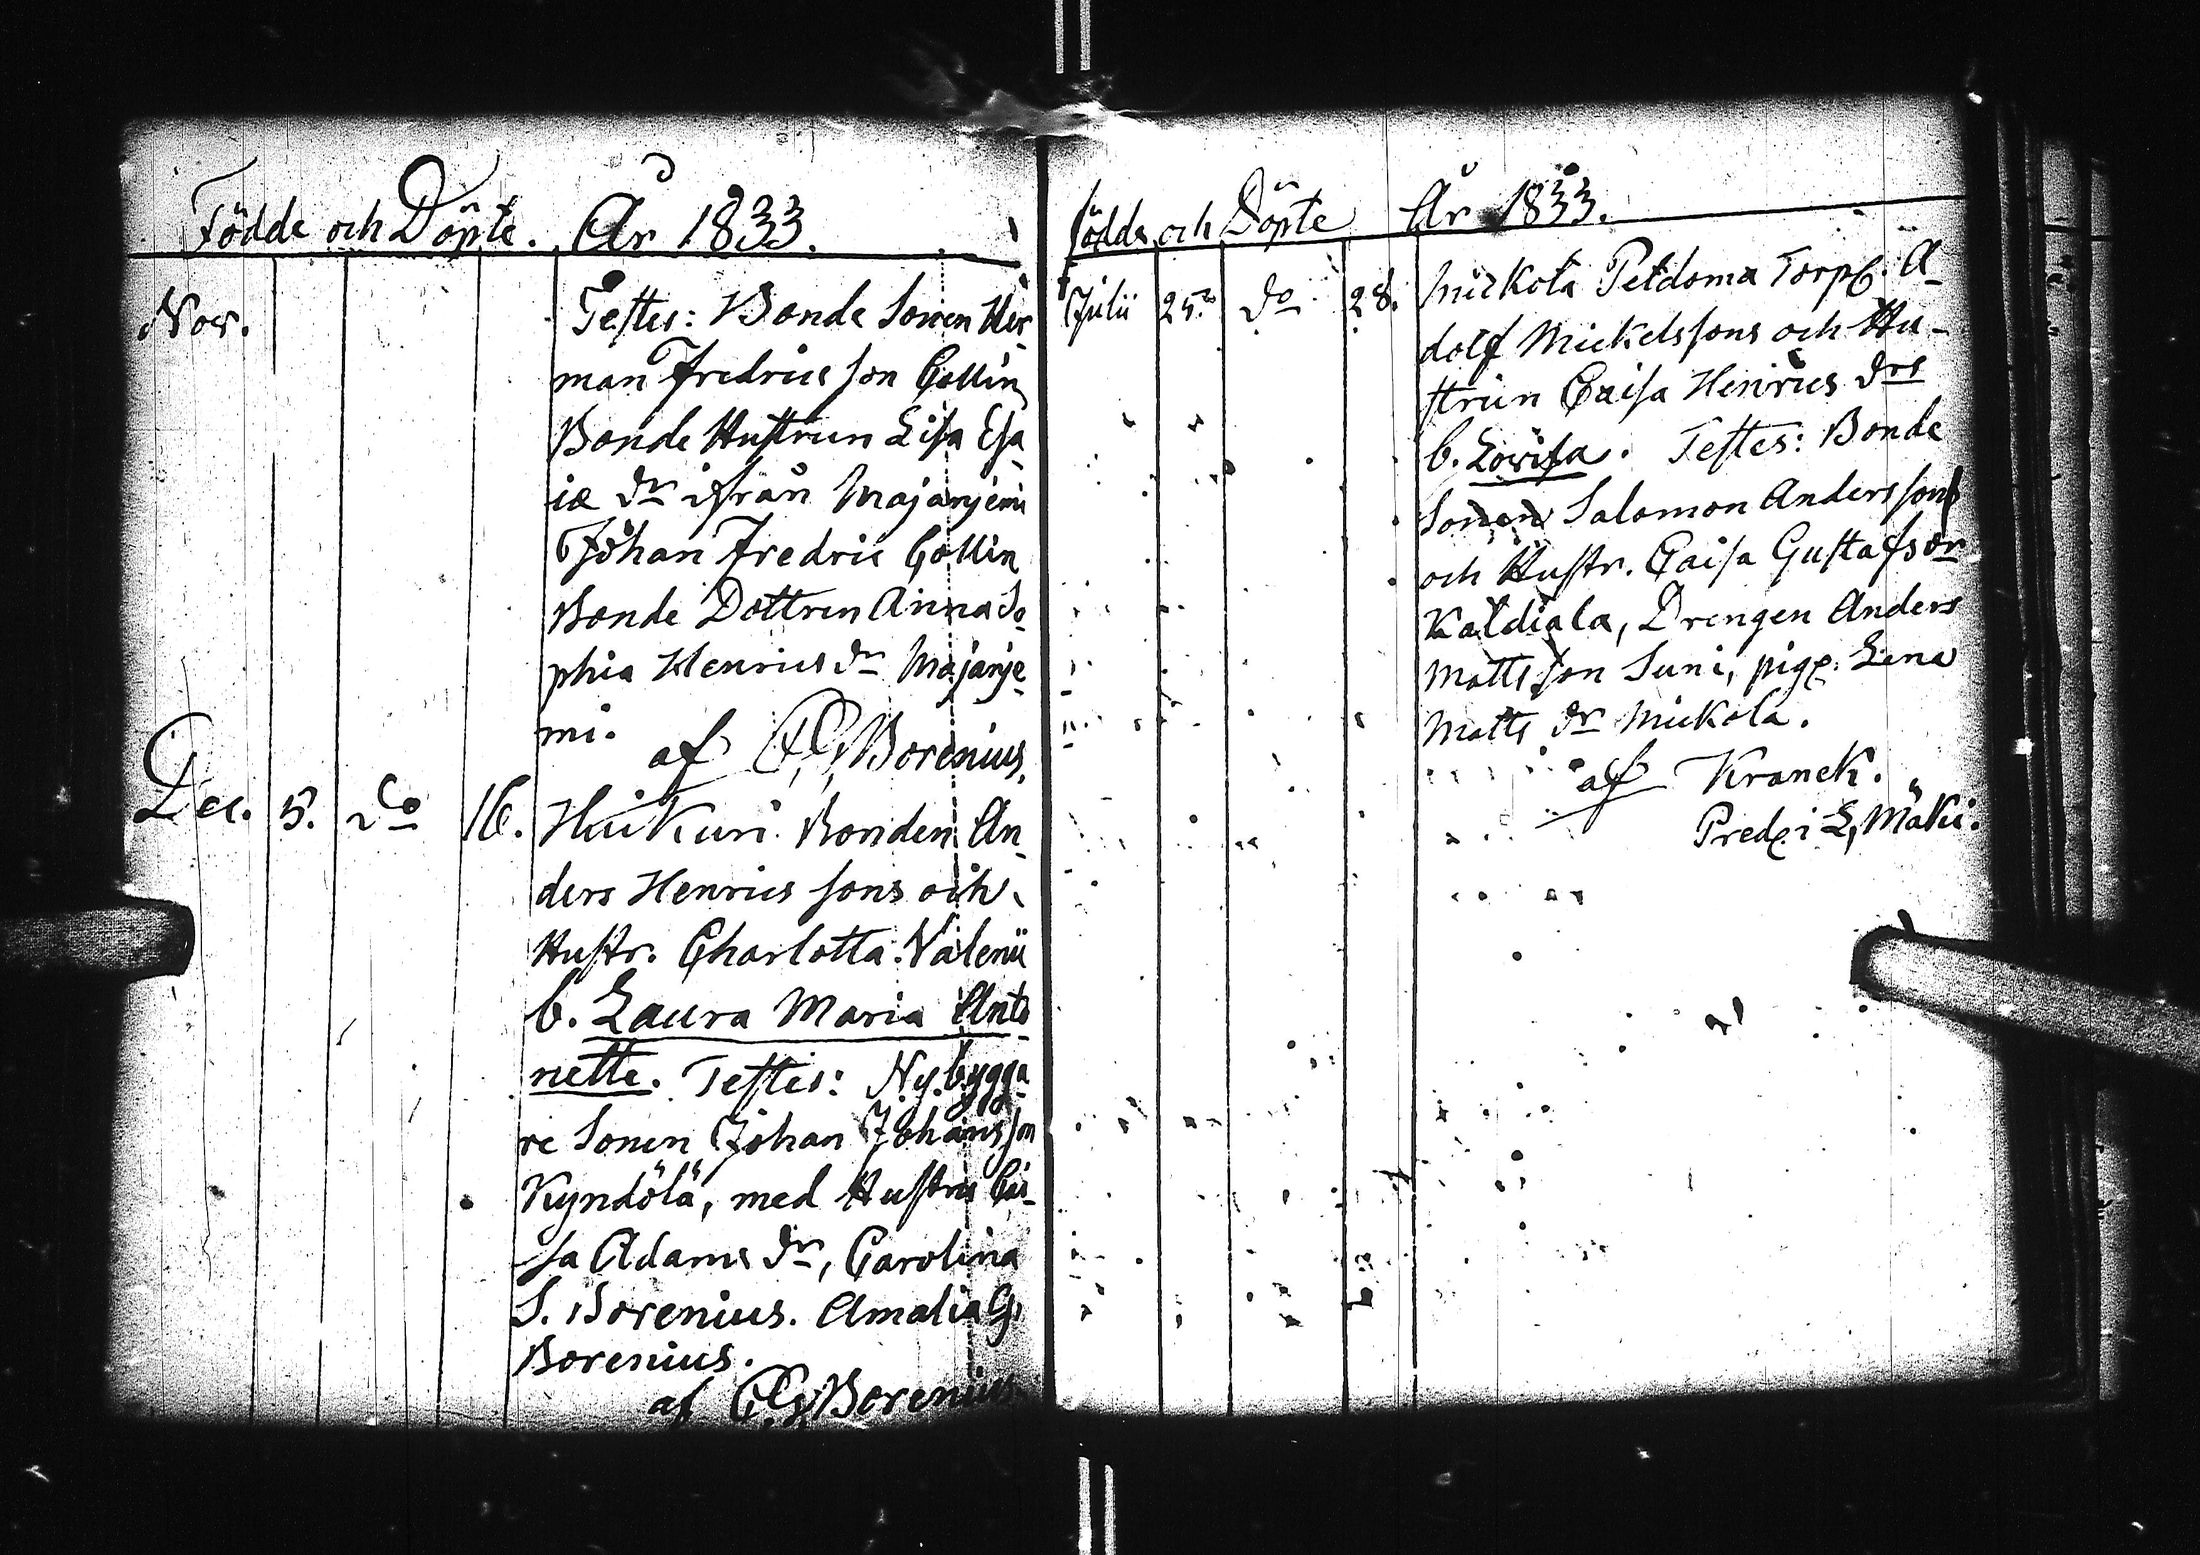 Födde och Döpte. År 1833.
Nov.
Testes: Bonde Sonen Her
man Fredricsson Collin
Bonde Hustrun Lisa Esa
iæ dr ifrån Majanjemi
Johan Fredric Collin
Bonde Dottren Anna So
phia Henricsdr Majanje
mi.
af C,G,Borenius,
Dec. 5. do 16. Huikuri Bonden An
ders Henrics sons och
Hustr. Charlotta Valenii
b. Laura Maria Anto
nette. Testes: Nybygga
re Sonen Johan Johansson
Kyndölä, med Hustru Cai
sa Adams dr, Carolina
S. Borenius. Amalia G.
Borenius.
af C,G,Borenius
födde och Döpte År 1833.
Julii 25. do 28. Mickola Peldoma Torp. A
dolf Mickelssons och Hu-
strun Caisa Henrics drs
b. Lovisa. Testes: Bonde
Sonen Salomon Andersson
och Hustr. Caisa Gustafsdr
Kaldiala, Drengen Anders
Matts son Suni, pig. Lena
Matts dr Mickola.
af Kranck.
Pred. i L, Mäki.